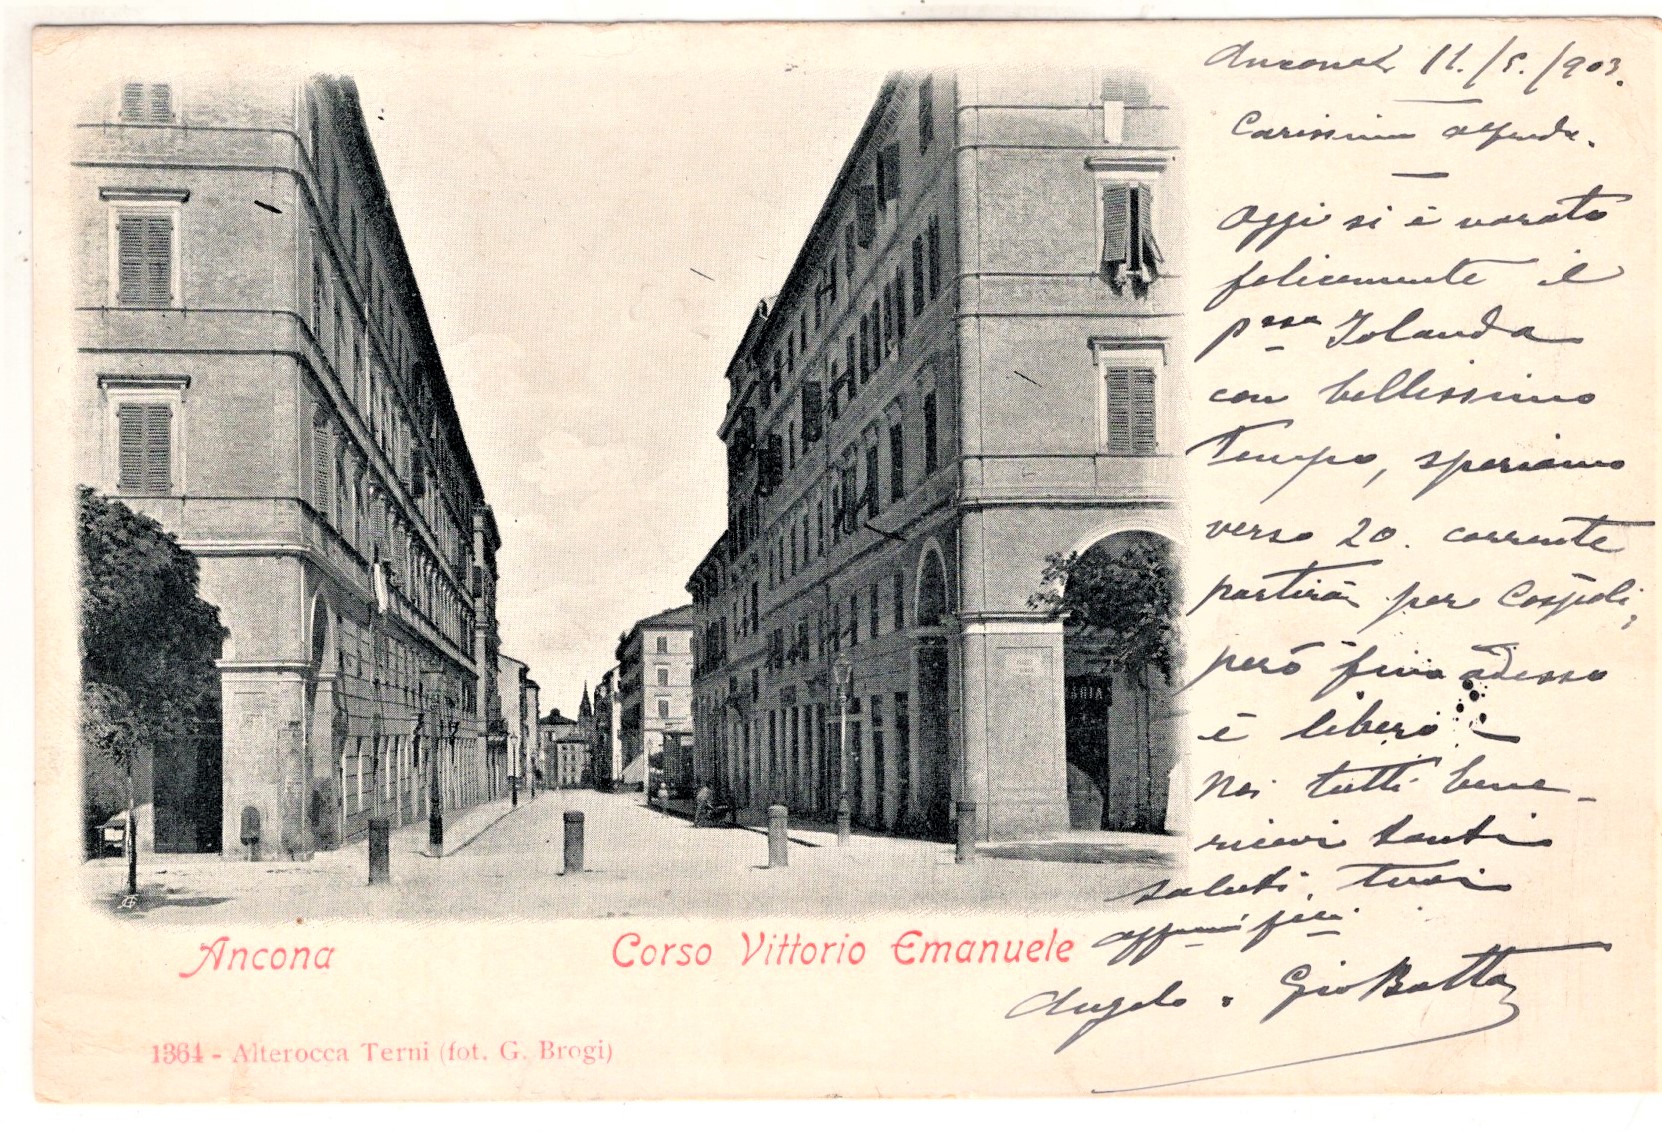 Ancona 11./5./903.
Carissimo Alfredo.
Oggi si è varato
felicemente il
pssa Iolanda
con bellissimo
tempo, speriamo
verso 20. corrente
partirà per Cospoli,
però fino adesso
è libero
Noi tutti bene -
ricevi tanti
saluti, tuoi
affmi
Angelo e Gio Batta
ARIA
Ancona
Corso Vittorio Emanuele
1364 - Alterocca Terni (fot. G. Brogi)